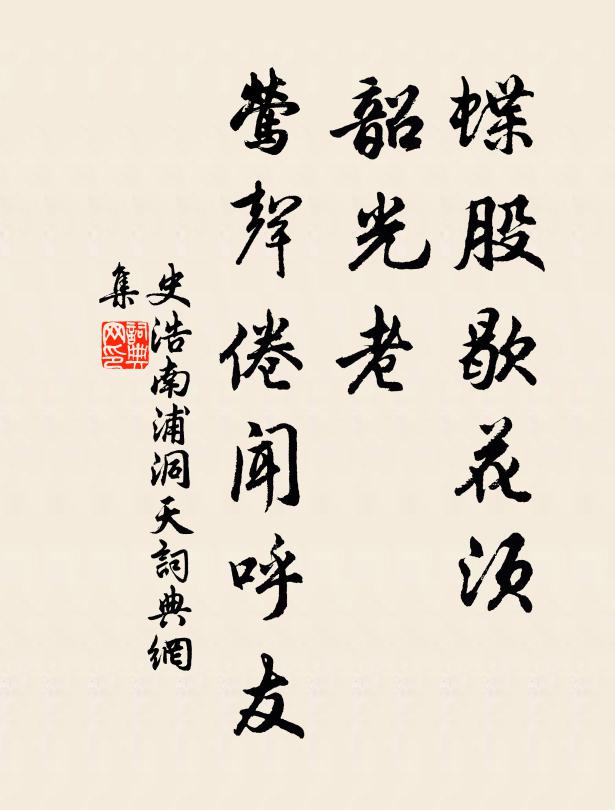 蝶股歇花須
韶光老
鶯聲倦聞呼友
史浩南浦洞天詞典網
集
詞典
网印